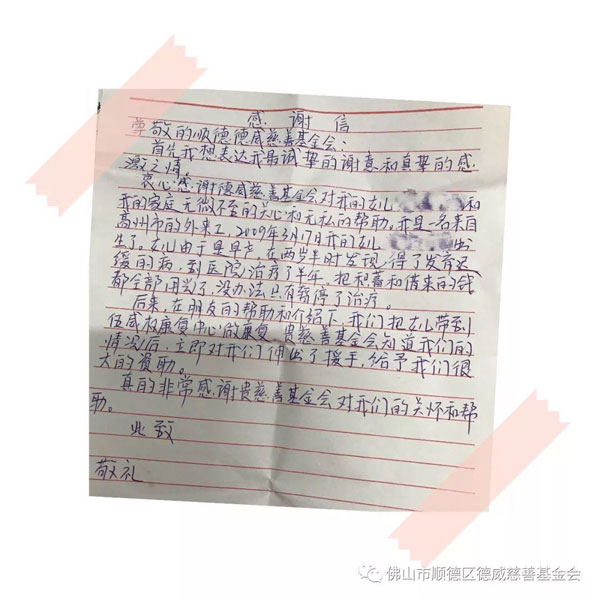 感谢信
尊敬的顺德德威慈善基金会:
首先我想表达我最诚挚的谢意和真挚的感
激之情。
衷心感谢德威慈善基金会对我的女儿 和
我的家庭无微不至的关心和无私的帮助。我是一名来自
高州市的外来工,2009年3月17日我的女儿 出
生了。女儿由于是早产,在两岁半时发现,得了发育迟
缓的病,到医院治疗了半年。把积蓄和借来的钱
都全部用光了,没办法只有暂停了治疗。
后来,在朋友的帮助和介绍下,我们把女儿带到
伍威权康复中心做康复。贵慈善基金会知道我们的
情况后,立即对我们伸出了援手,给予我们很
大的资助。
真的非常感谢贵慈善基金会对我们的关怀和帮
助。
此致
敬礼
佛山市顺德区德威慈善基金会